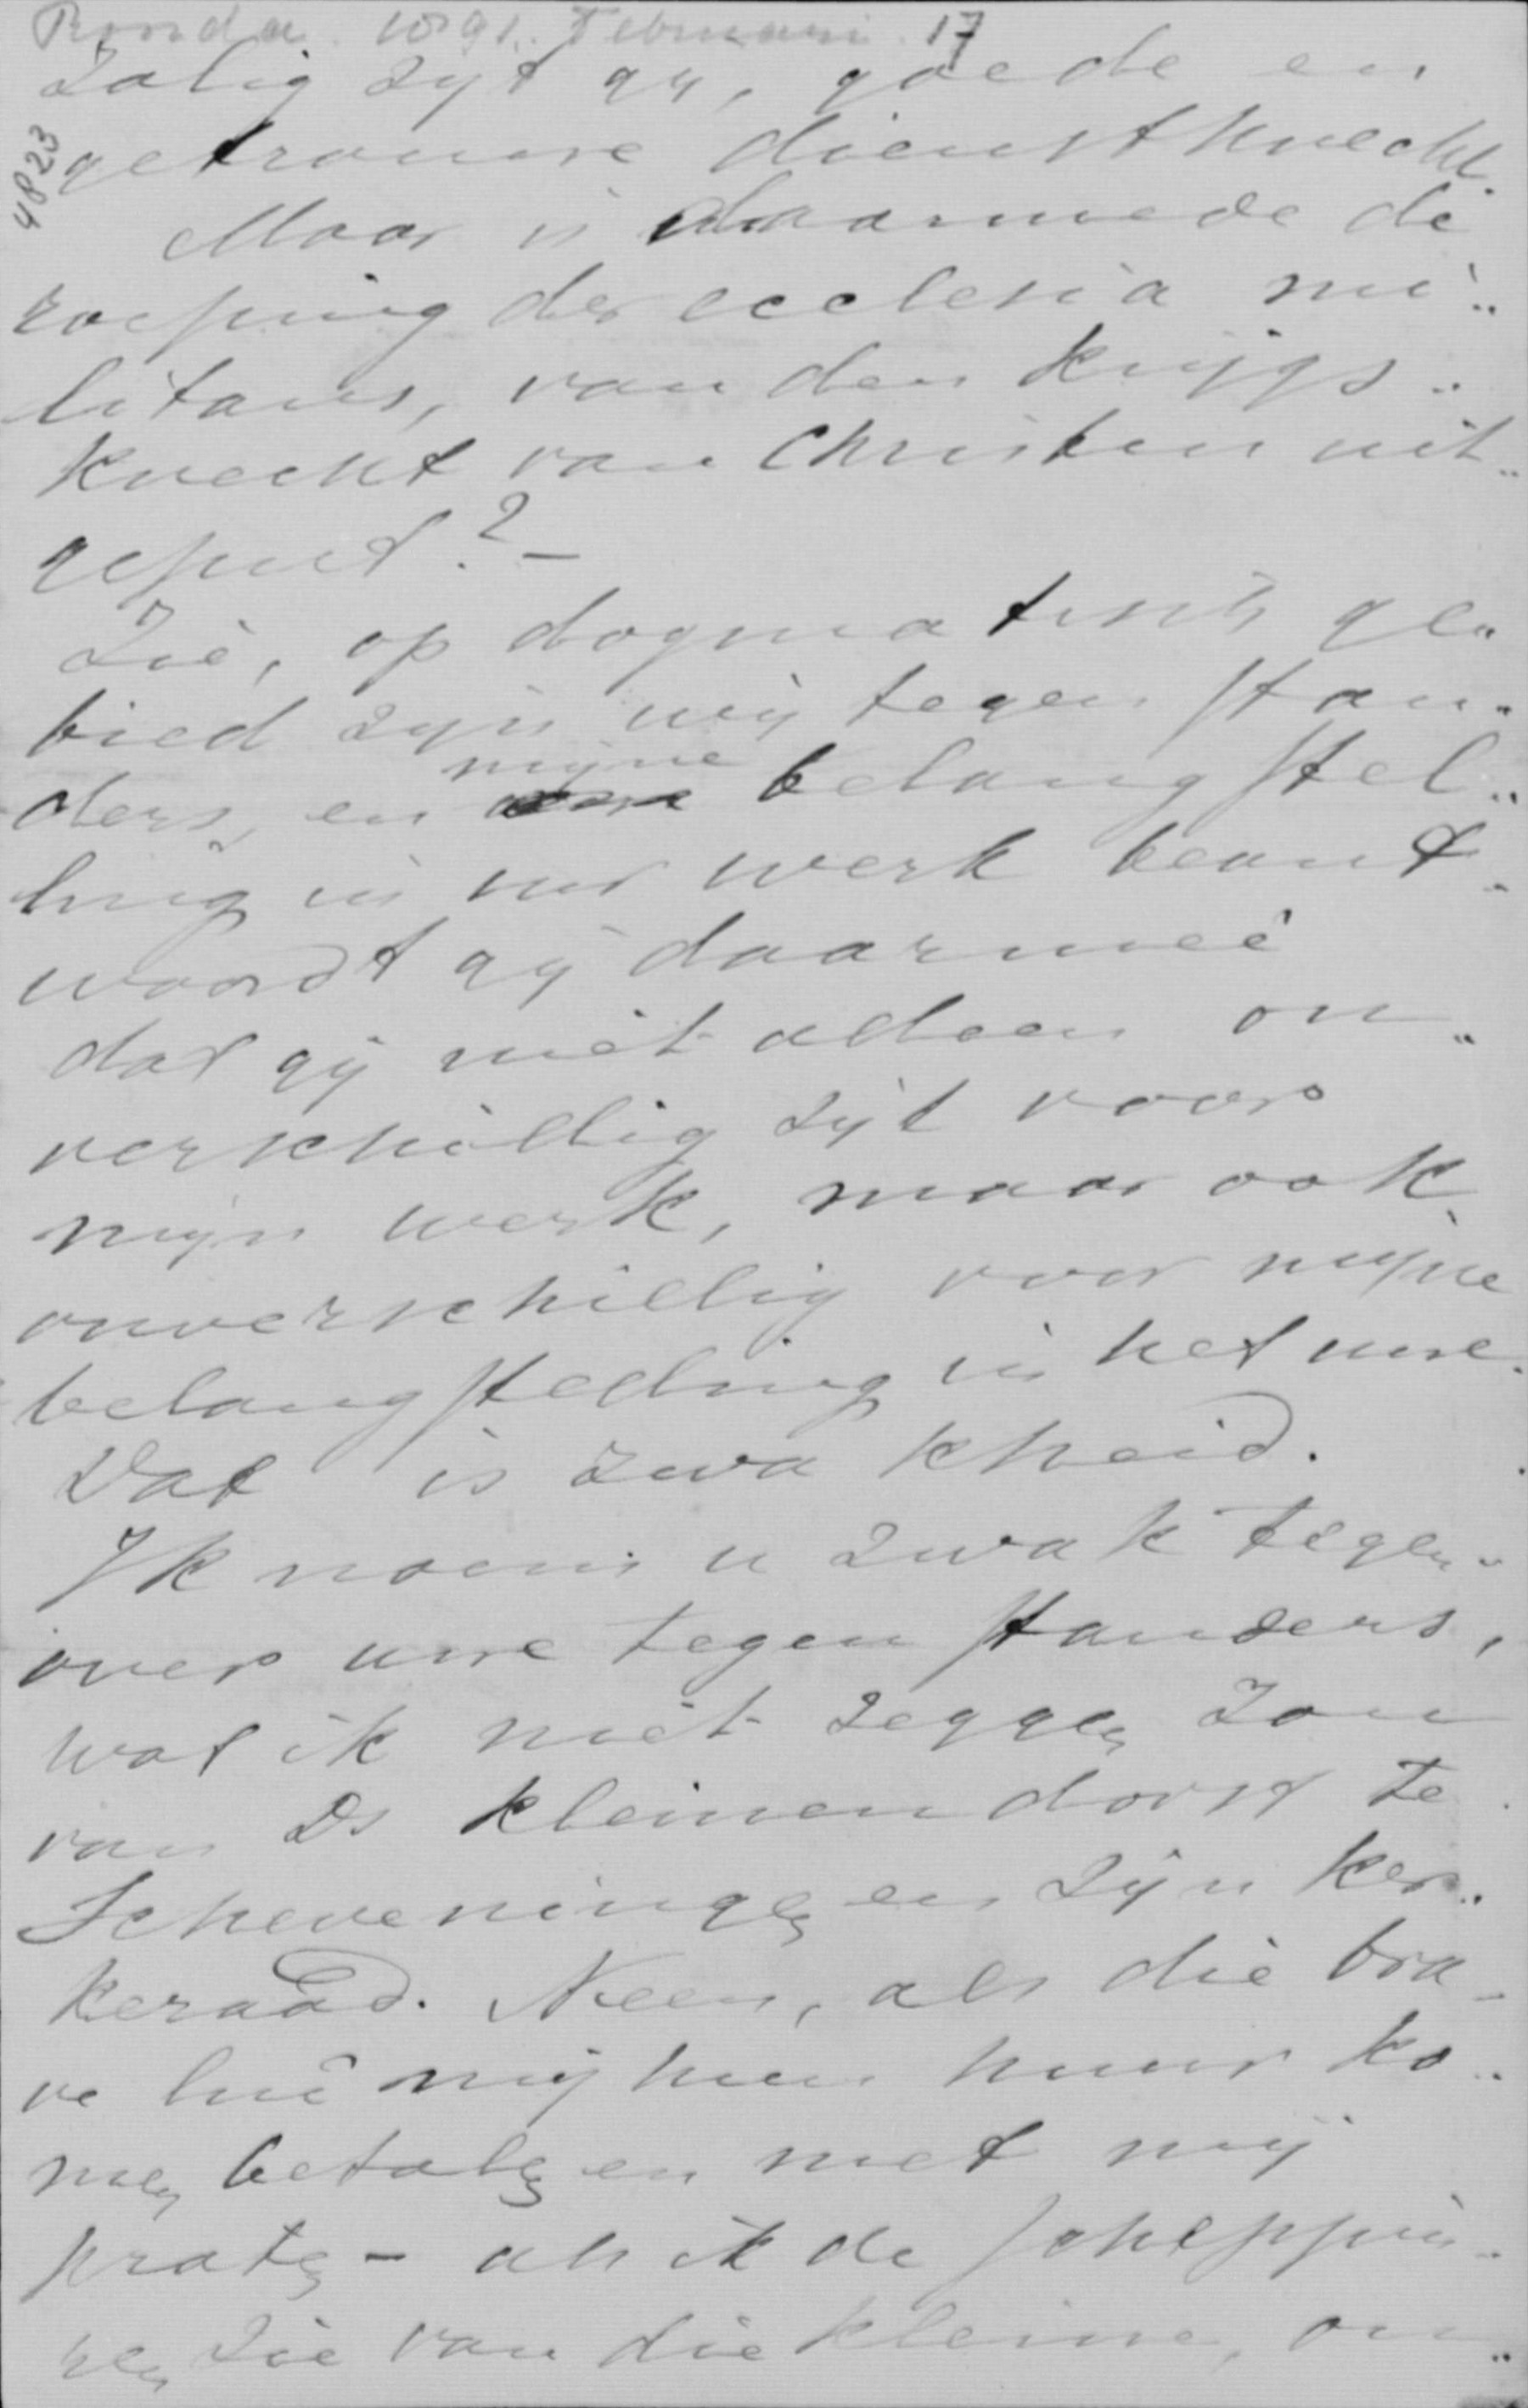 Ronda. 1891. Februari. 17
4823
Zalig zyt gy, goede en
getrouwe dienstknecht.
Maar is daarmede de
roeping der ecclesia mi..
litans, van den krijgs..
knecht van Christus uit..
geput?—
Zie, op dogmatisch ge..
bied zyn wij tegenstan..
ders, en mijne belangstel..
ling in uw werk beant..
woordt gij daarmeê
dat gij niet alleen on..
verschillig zijt voor
mijn werk, maar ook
onverschillig voor mijne
belangstelling in het uwe.
Dat is zwakheid.
Ik noem u zwak tegen..
over uwe tegenstanders,
wat ik niet zeggen zou
van Ds Kleinendorst te
Scheveningen en zijn ker..
keraad. Neen, als die bra..
ve lui mij hun huur ko..
men betalen en met mij
praten - als ik de scheppin..
gen zie van die kleine, on..